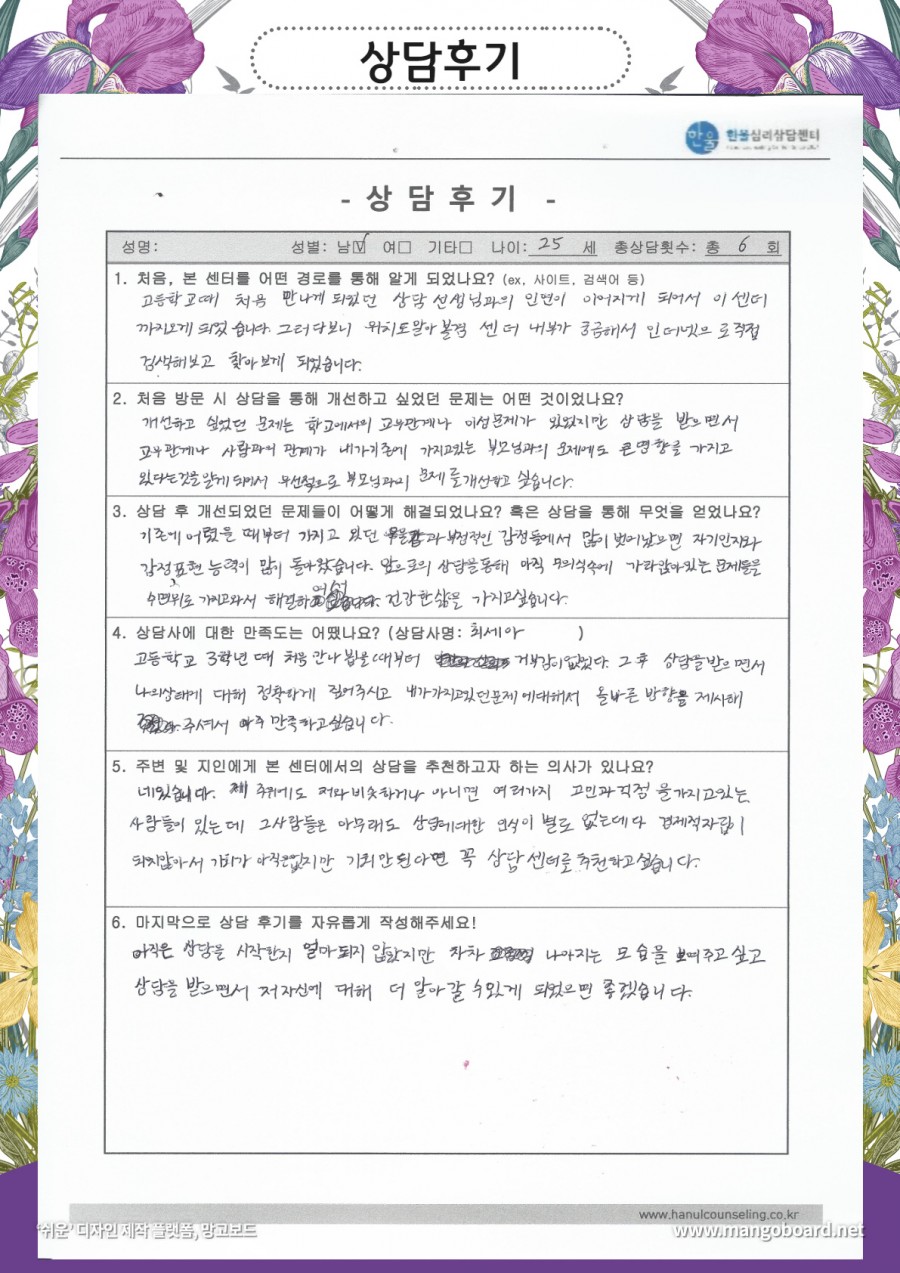 상담후기
한울 한울심리상담센터
- 상 담 후 기 -
성명: 성별: 남☑ 여□ 기타□ 나이: 25 세 총상담횟수: 총 6 회
1. 처음, 본 센터를 어떤 경로를 통해 알게 되었나요? (ex. 사이트, 검색어 등)
고등학교때 처음 만나게 되었던 상담 선생님과의 인연이 이어지게 되어서 이 센터
까지오게 되었습니다. 그러다보니 위치도알아볼겸 센터 내부가 궁금해서 인터넷으로 직접
검색해보고 찾아보게 되었습니다.
2. 처음 방문 시 상담을 통해 개선하고 싶었던 문제는 어떤 것이었나요?
개선하고 싶었던 문제는 학교에서의 교우관계나 이성문제가 있었지만 상담을 받으면서
교우관계나 사람과의 관계가 내가기존에 가지고있는 부모님과의 문제에도 큰영향을 가지고
있다는것을알게되어서 우선적으로 부모님과의 문제를개선하고 싶습니다.
3. 상담 후 개선되었던 문제들이 어떻게 해결되었나요? 혹은 상담을 통해 무엇을 얻었나요?
기존에 어렸을 때부터 가지고 있던 우울감과 부정적인 감정들에서 많이 벗어났으면 자기인지와
감정표현 능력이 많이 돌아왔습니다. 앞으로의 상담을통해 아직 무의식속에 가라앉아있는 문제들을
수면위로 가지고와서 해결하여서 건강한삶을 가지고싶습니다.
4. 상담사에 대한 만족도는 어땠나요? (상담사명: 최세아 )
고등학교 3학년 때 처음 만나 뵘을때부터 거부감이없었다. 그 후 상담을받으면서
나의상태에 대해 정확하게 짚어주시고 내가가지고있던문제에대해서 올바른 방향을 제시해
주셔서 아주 만족하고싶습니다.
5. 주변 및 지인에게 본 센터에서의 상담을 추천하고자 하는 의사가 있나요?
네있습니다. 제 주위에도 저와비슷하거나 아니면 여러가지 고민과걱정을가지고있는
사람들이 있는데 그사람들은 아무래도 상담에대한 인식이 별로 없는데다 경제적자립이
되지않아서 기회가 아직은없지만 기회만된다면 꼭 상담센터를추천하고싶습니다.
6. 마지막으로 상담 후기를 자유롭게 작성해주세요!
아직은 상담을 시작한지 얼마되지 않았지만 차차 나아지는 모습을 보여주고싶고
상담을 받으면서 저자신에 대해 더 알아갈 수있게 되었으면 좋겠습니다.
www.hanulcounseling.co.kr
'쉬운' 디자인 제작 플랫폼, 망고보드 www.mangoboard.net